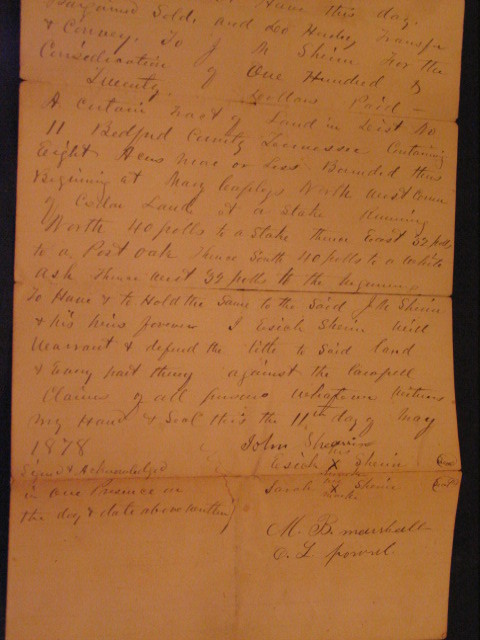 Have this day
Bargained Sold and do Hereby Transfer
& Convey To J M Sheirn For the
Consideration of One Hundred &
Twenty Dollars Paid —
A Certain Tract of Land in Dist No
11 Bedford County Tennessee Containing
Eight Acres more or Less Bounded thus
Beginning at Mary North West Corner
of Cedar Land at a Stake Running
North 40 polls to a Stake thence East 32 polls
to a Post Oak thence South 40 polls to a White
Ash thence West 32 polls to the beginning
To Have & to Hold the Same to the Said J M Sheirn
& his heirs forever I Esiah Sheirn will
Warrant & defend the title to Said land
& Every part thereof against the Lawfull
Claims of all persons whatever Witness
My Hand & Seal this the 11th day of May
1878 John
his
Signed & Acknowledged Esiah X Sheirn (Seal)
her
in our Presence on Sarah X Sheirn (Seal)
mark
the day & date above written
M. B. Marshall